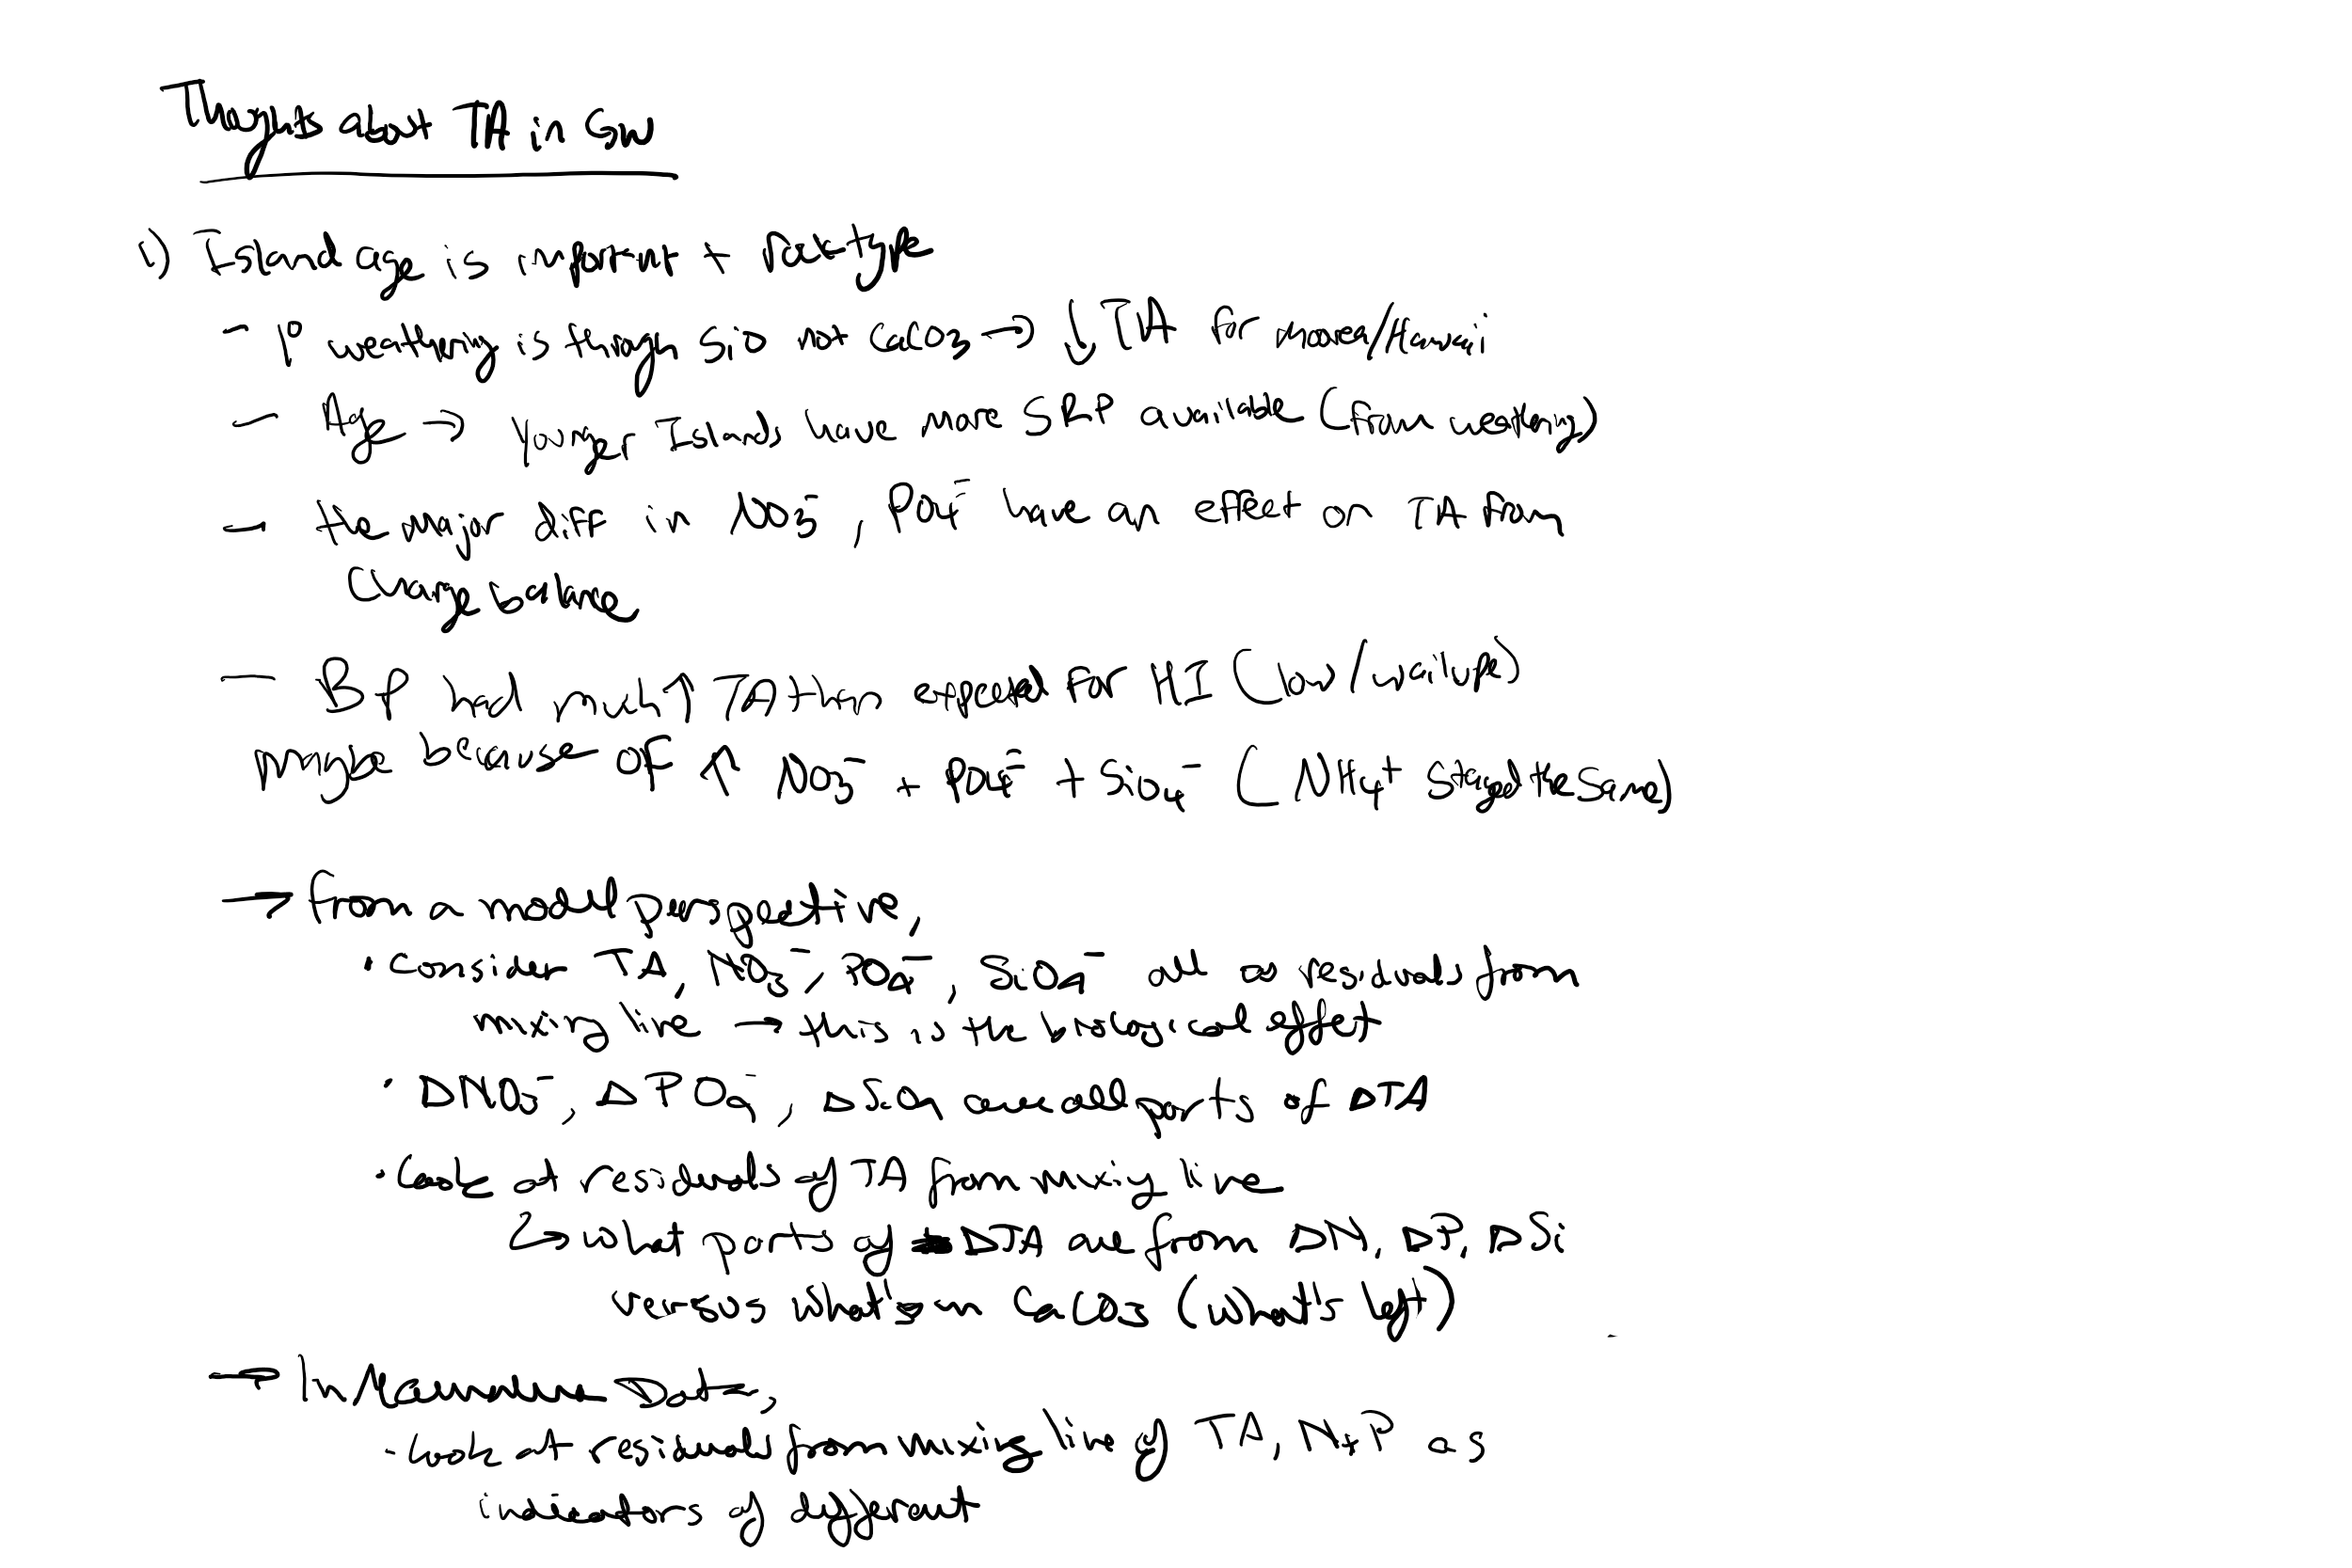 Thoughts about TA in GW
1) Island age is important + rocktype
- P weathering is through SiO not CaCO3 → ↓ TA for moorea/Hawaii
- Age → younger Islands have more SRP available (from weathering)
- the major diff in NO3-, PO4- have an effect on TA from
Charge balance
- BP had much ↑ TA than expected for HI (low/wailupe)
maybe because of ↑ NO3- + PO4- + SiO4- (NH4+ stayed the same)
→ from a model perspective,
· consider TA, NO3-, PO4-, SiO4- all as residuals from
mixing line → this is the biological effect
· ΔNO3-, ΔPO4-, ΔSiO4 are all parts of ΔTA
· Look at residuals of TA from mixing line
↳ what parts of ΔTA are from ΔN, ΔP, ΔSi
versus what's in CaCO3 (what's left)
→ In Data,
- look at residuals from mixing line of TA, N+P as
indicators of different